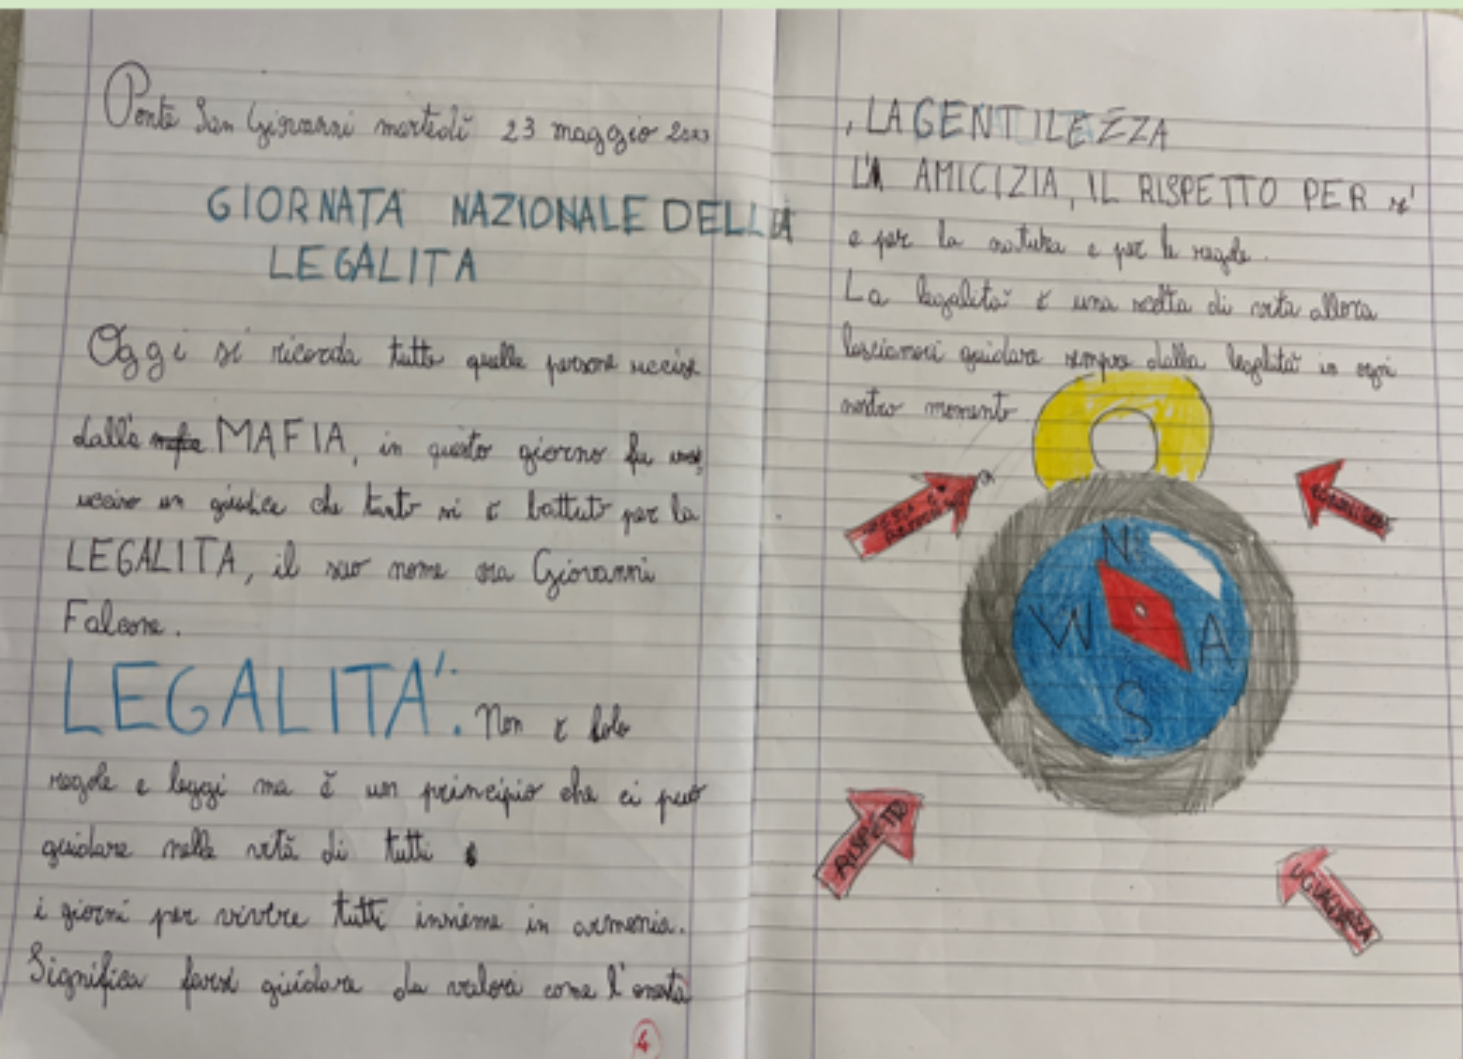 Ponte San Giovanni martedì 23 maggio
GIORNATA NAZIONALE DELLA
LEGALITA
Oggi si ricorda tutte quelle persone uccise
dalla MAFIA, in questo giorno fu
ucciso un giudice che tanto si è battuto per la
LEGALITA, il suo nome era Giovanni
Falcone.
LEGALITA': Non è solo
regole e leggi ma è un principio che ci può
guidare nella vità di tutti
i giorni per vivere tutti insieme in armonia.
Significa farsi guidare da valori come l'onestà
4
, LA GENTILEZZA
L'A AMICIZIA, IL RISPETTO PER se'
e per la natura e per le regole.
La legalità è una scelta di vita allora
lasciamoci guidare sempre dalla leglità in ogni
nostro momento
N
W A
S
RISPETTO
UGUAGLIANZA